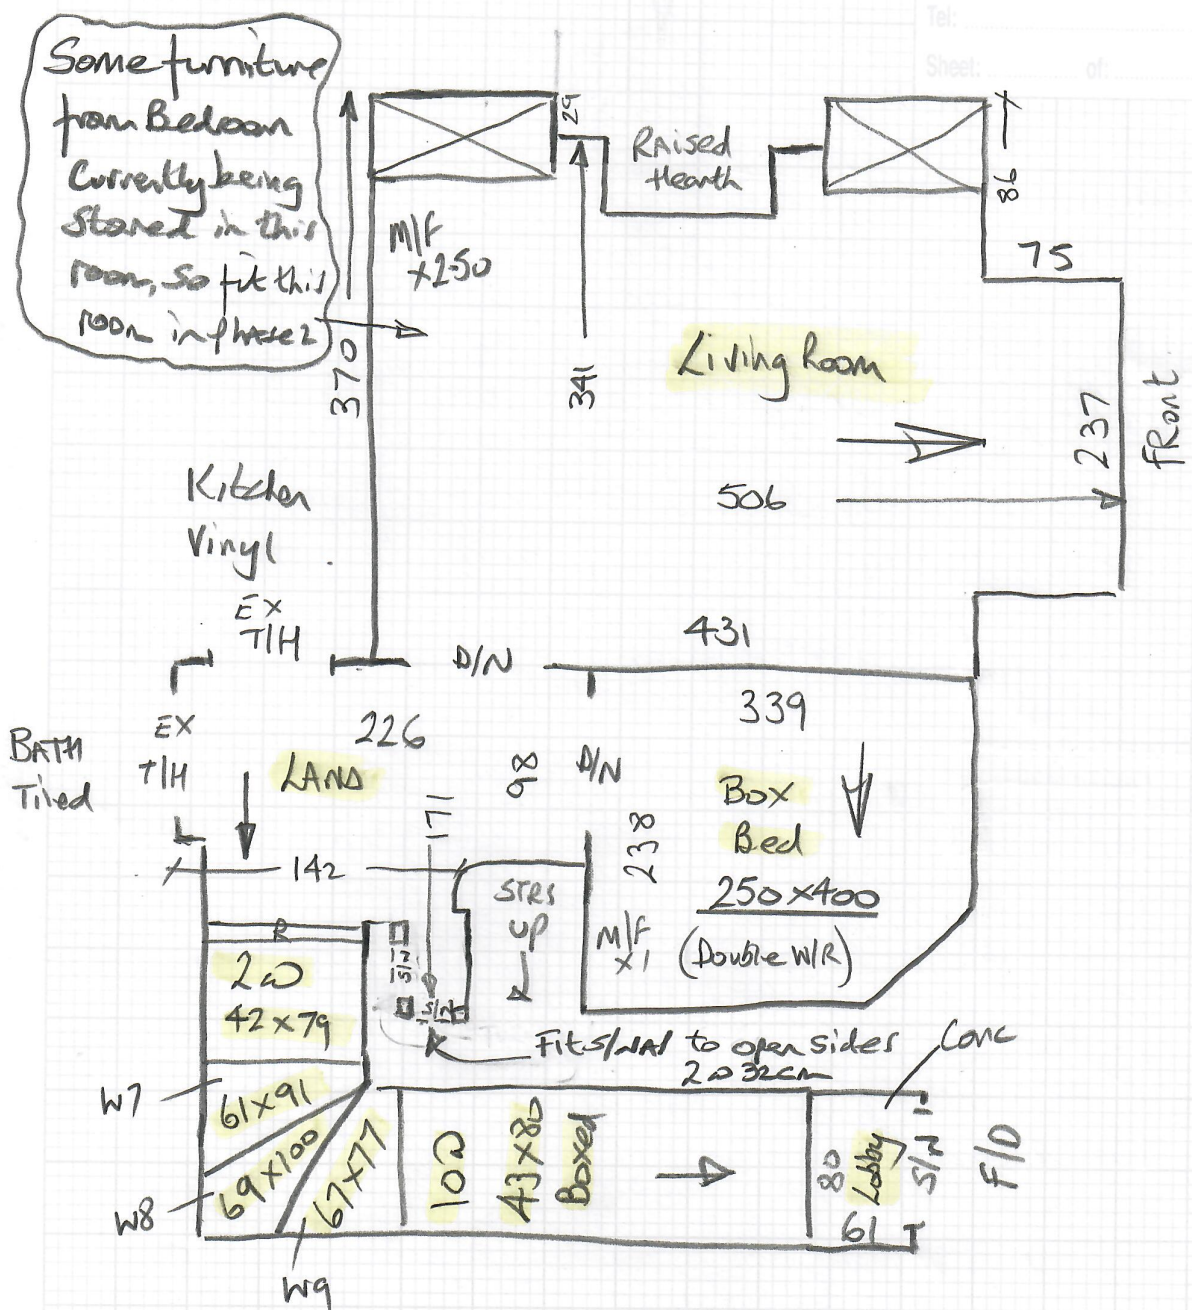 Tel:
Sheet: of:
Some furniture
from Bedroom
Currently being
Stored in this
room, So fit this
room in phase 2
29
Raised
Hearth
86
75
M/F
x2.50
370
341
Living Room
237
FRont
506
Kitchen
Vinyl
EX
T/H
431
D/N
339
BATH
Tiled
EX
T/H
226
LAND
98
D/N
171
238
Box
Bed
250x400
(Double W/R)
M/F
x1
142
STRS
UP
R
S/N
S/N
2@
42x79
Fit S/NAP to open sides
2@32cm
Conc
W7
61x91
W8
69x100
67x77
W9
10@
43x80
Boxed
80
Lobby
61
S/N
F/D